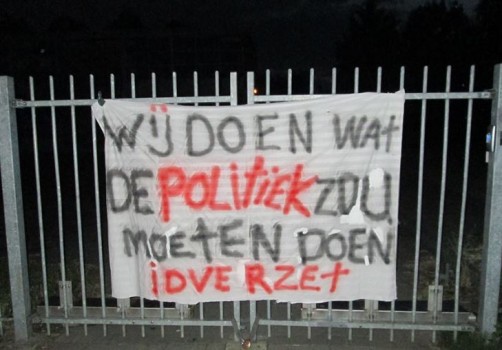 WIJ DOEN WAT
DE POLITIEK ZOU
MOETEN DOEN
IDVERZET